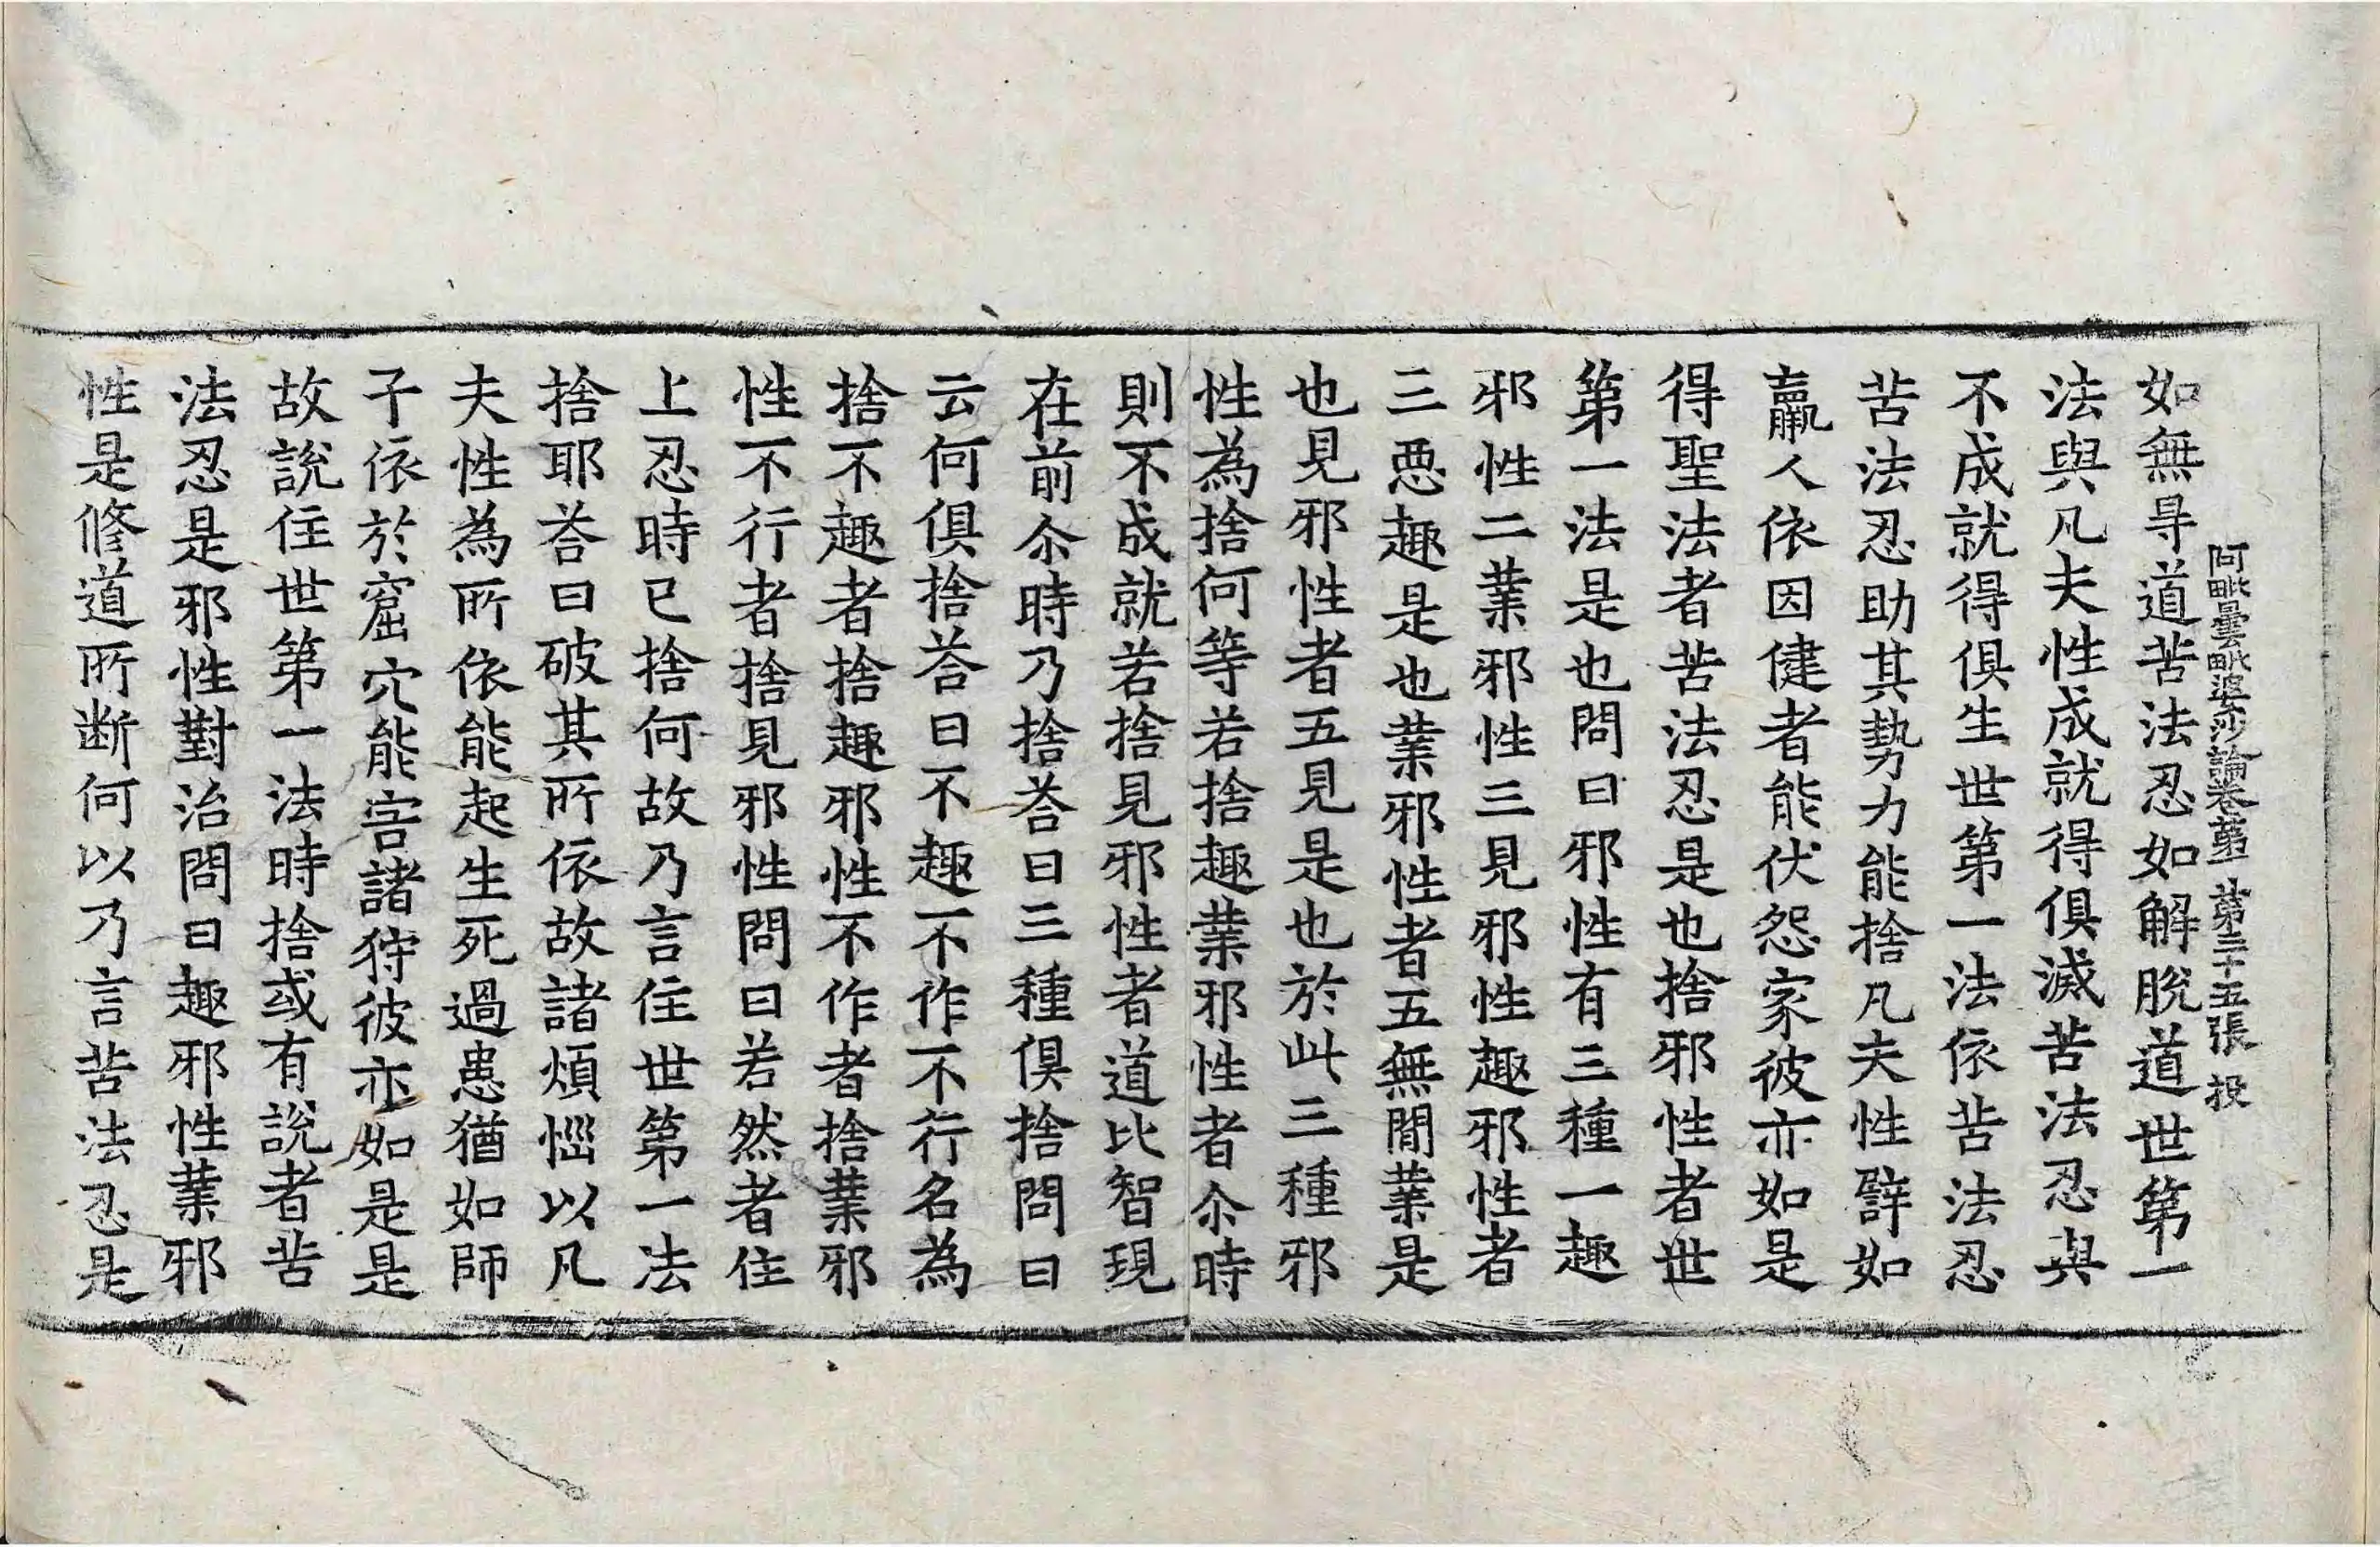 阿毗曇毗婆沙論卷第二 第二十五張 投
如無㝵道苦法忍如解脫道世第一
法與凡夫性成就得俱滅苦法忍與
不成就得俱生世第一法依苦法忍
苦法忍助其勢力能捨凡夫性譬如
羸人依因健者能伏怨家彼亦如是
得聖法者苦法忍是也捨邪性者世
第一法是也問曰邪性有三種一趣
邪性二業邪性三見邪性趣邪性者
三惡趣是也業邪性者五無間業是
也見邪性者五見是也於此三種邪
性為捨何等若捨趣業邪性者尒時
則不成就若捨見邪性者道比智現
在前尒時乃捨荅曰三種俱捨問曰
云何俱捨荅曰不趣不作不行名為
捨不趣者捨趣邪性不作者捨業邪
性不行者捨見邪性問曰若然者住
上忍時已捨何故乃言住世第一法
捨耶荅曰破其所依故諸煩惱以凡
夫性為所依能起生死過患猶如師
子依於窟穴能害諸狩彼亦如是是
故說住世第一法時捨或有說者苦
法忍是邪性對治問曰趣邪性業邪
性是修道所断何以乃言苦法忍是